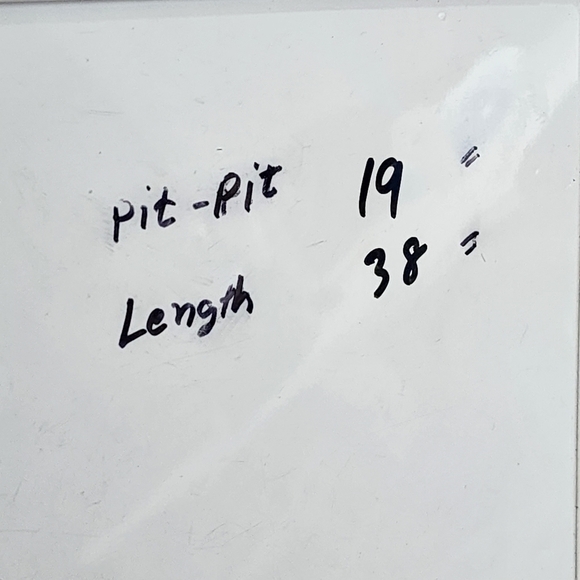 Pit-Pit 19 "
Length 38 "